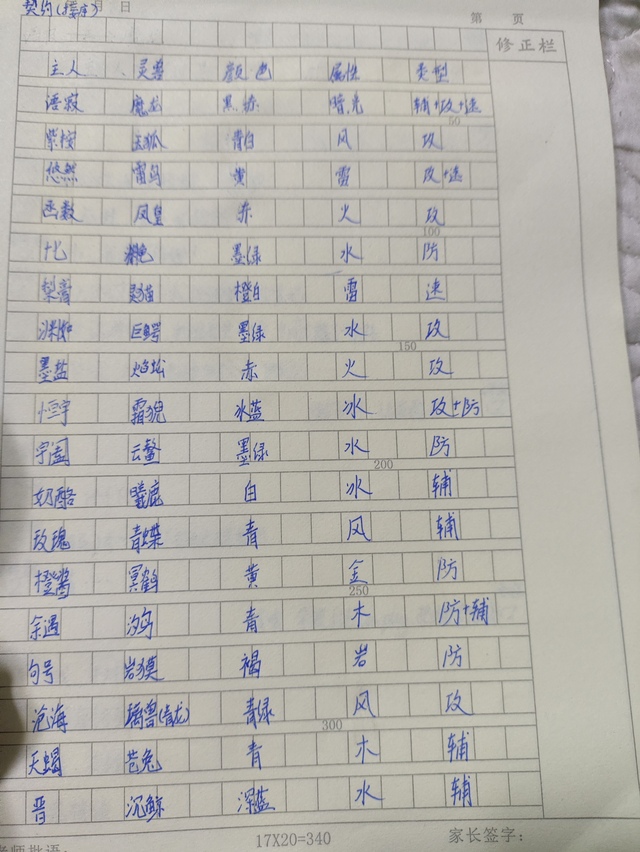 契约(接序) 月 日
第 页
修正栏
主人 灵兽 颜色 属性 类型
语寂 魔龙 黑赤 暗光 辅+攻+速
50
紫桉 玉狐 青白 风 攻
悠然 雷鸟 黄 雷 攻+速
函数 凤皇 赤 火 攻
100
十七 墨绿 水 防
梨膏 灵猫 橙白 雷 速
巨鳄 墨绿 水 攻
150
墨盐 焰蚣 赤 火 攻
恒宇 霜猊 冰蓝 冰 攻+防
宇阖 云鳌 墨绿 水 防
200
奶酪 曦鹿 白 冰 辅
玫瑰 青蝶 青 风 辅
橙酱 冥鹤 黄 金 防
250
余遇 汐鸟 青 木 防+辅
句号 岩獏 褐 岩 防
沧海 璃兽(青龙) 青绿 风 攻
300
天蝎 苍兔 青 木 辅
晋 沉鲸 深蓝 水 辅
老师批语:
17X20=340
家长签字: